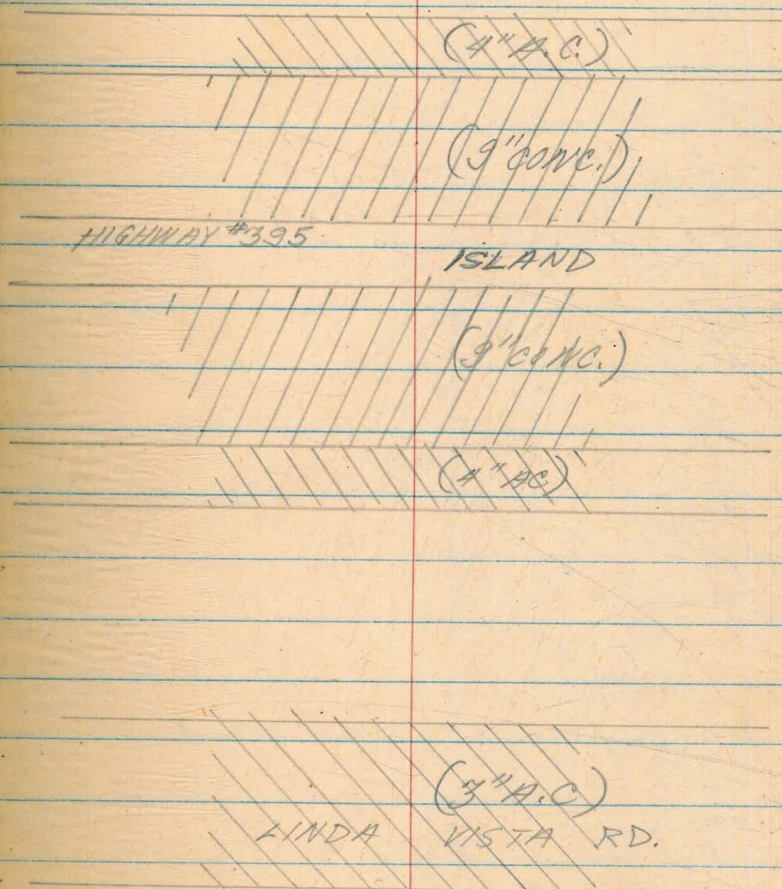 (4" A.C.)
(9" CONC.)
HIGHWAY #395
ISLAND
(9" CONC.)
(4" AC)
(3" A.C)
LINDA VISTA RD.